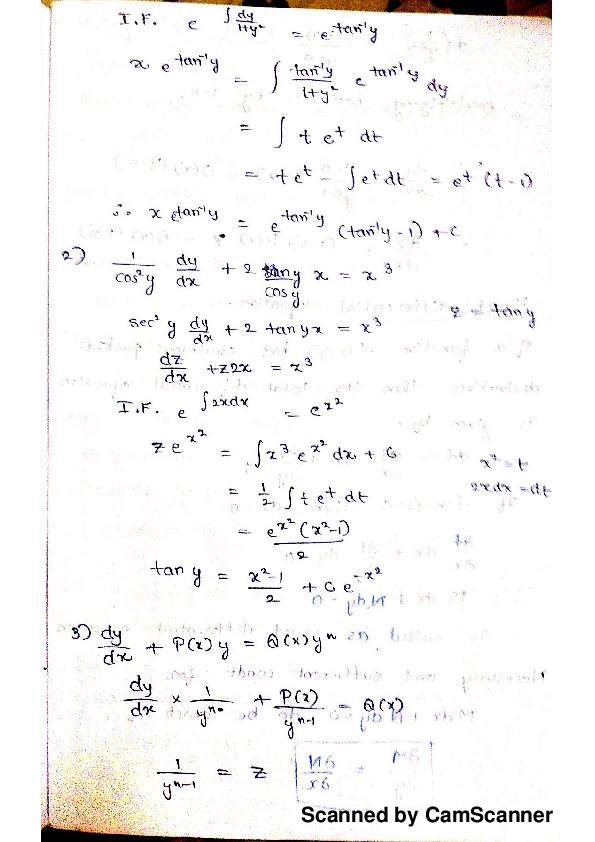 I.F. e^{∫ dy/1+y²} = e^{tan⁻¹y}
x. e^{tan⁻¹y} = ∫ tan⁻¹y/1+y² e^{tan⁻¹y} dy
= ∫ t e^t dt
= te^t - ∫e^t dt = e^t (t-1)
∴ x e^{tan⁻¹y} = e^{tan⁻¹y} (tan⁻¹y - 1) + C
2) 1/cos²y dy/dx + 2 siny/cosy x = x³
sec²y dy/dx + 2 tanyx = x³ z = tany
dz/dx + z2x = x³
I.F. e^{∫2xdx} = e^{x²}
ze^{x²} = ∫x³ e^{x²} dx + C x² = t
= 1/2 ∫ t e^t dt 2xdx = dt
= e^{x²}(x²-1)/2
tan y = x²-1/2 + C e^{-x²}
3) dy/dx + P(x)y = Q(x)yⁿ
dy/dx × 1/yⁿ + P(x)/y^{n-1} = Q(x)
1/y^{n-1} = z
Scanned by CamScanner